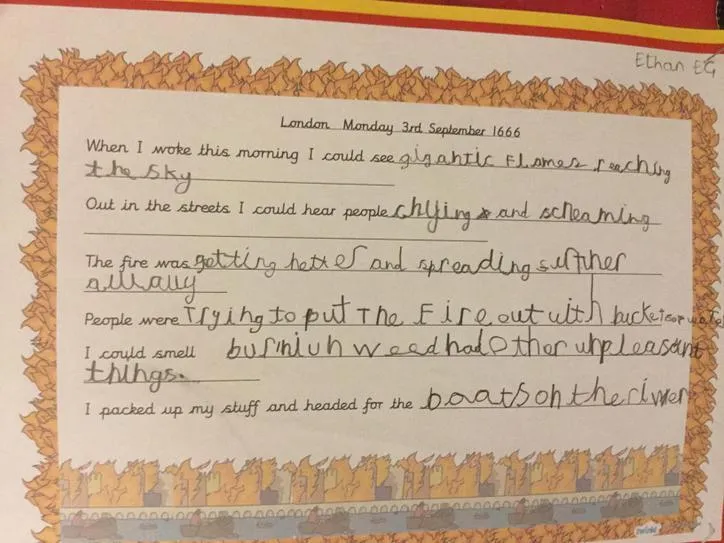 Ethan EG
London Monday 3rd September 1666
When I woke this morning I could see gigantic Flames reaching
the sky
Out in the streets I could hear people chying and screaming
The fire was getting hetter and spreading surther
allwauy
People were Trying to put The Fire out with buckets of water
I could smell burniuh weed had other unpleasant
things.
I packed up my stuff and headed for the boats on the river
twinkl